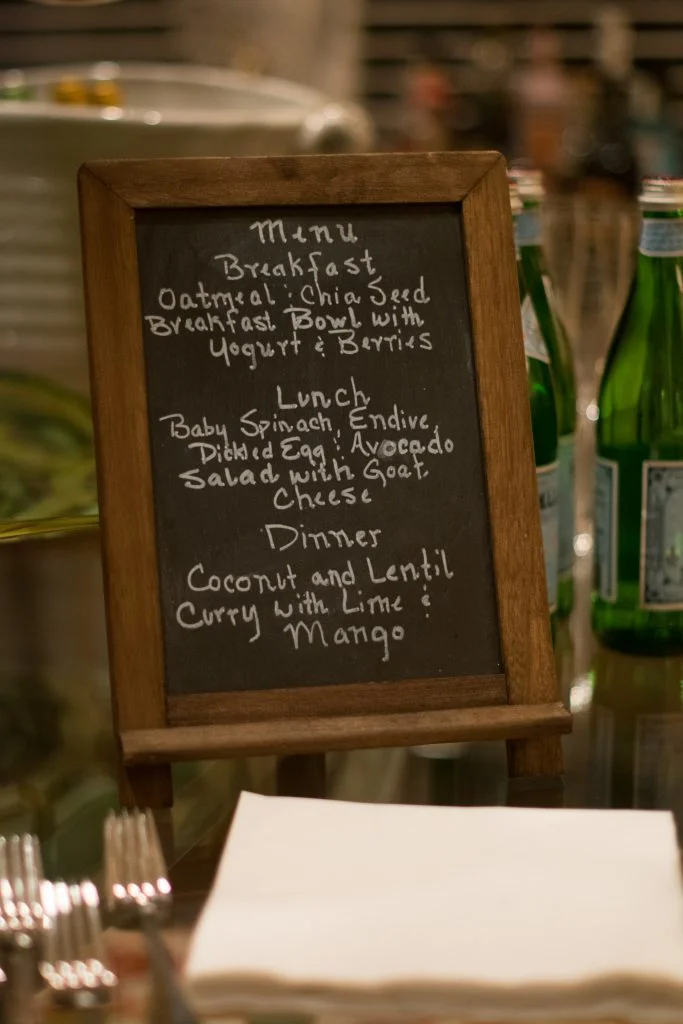 Menu
Breakfast
Oatmeal & Chia Seed
Breakfast Bowl with
Yogurt & Berries
Lunch
Baby Spinach, Endive,
Pickled Egg & Avocado
Salad with Goat
Cheese
Dinner
Coconut and Lentil
Curry with Lime &
Mango